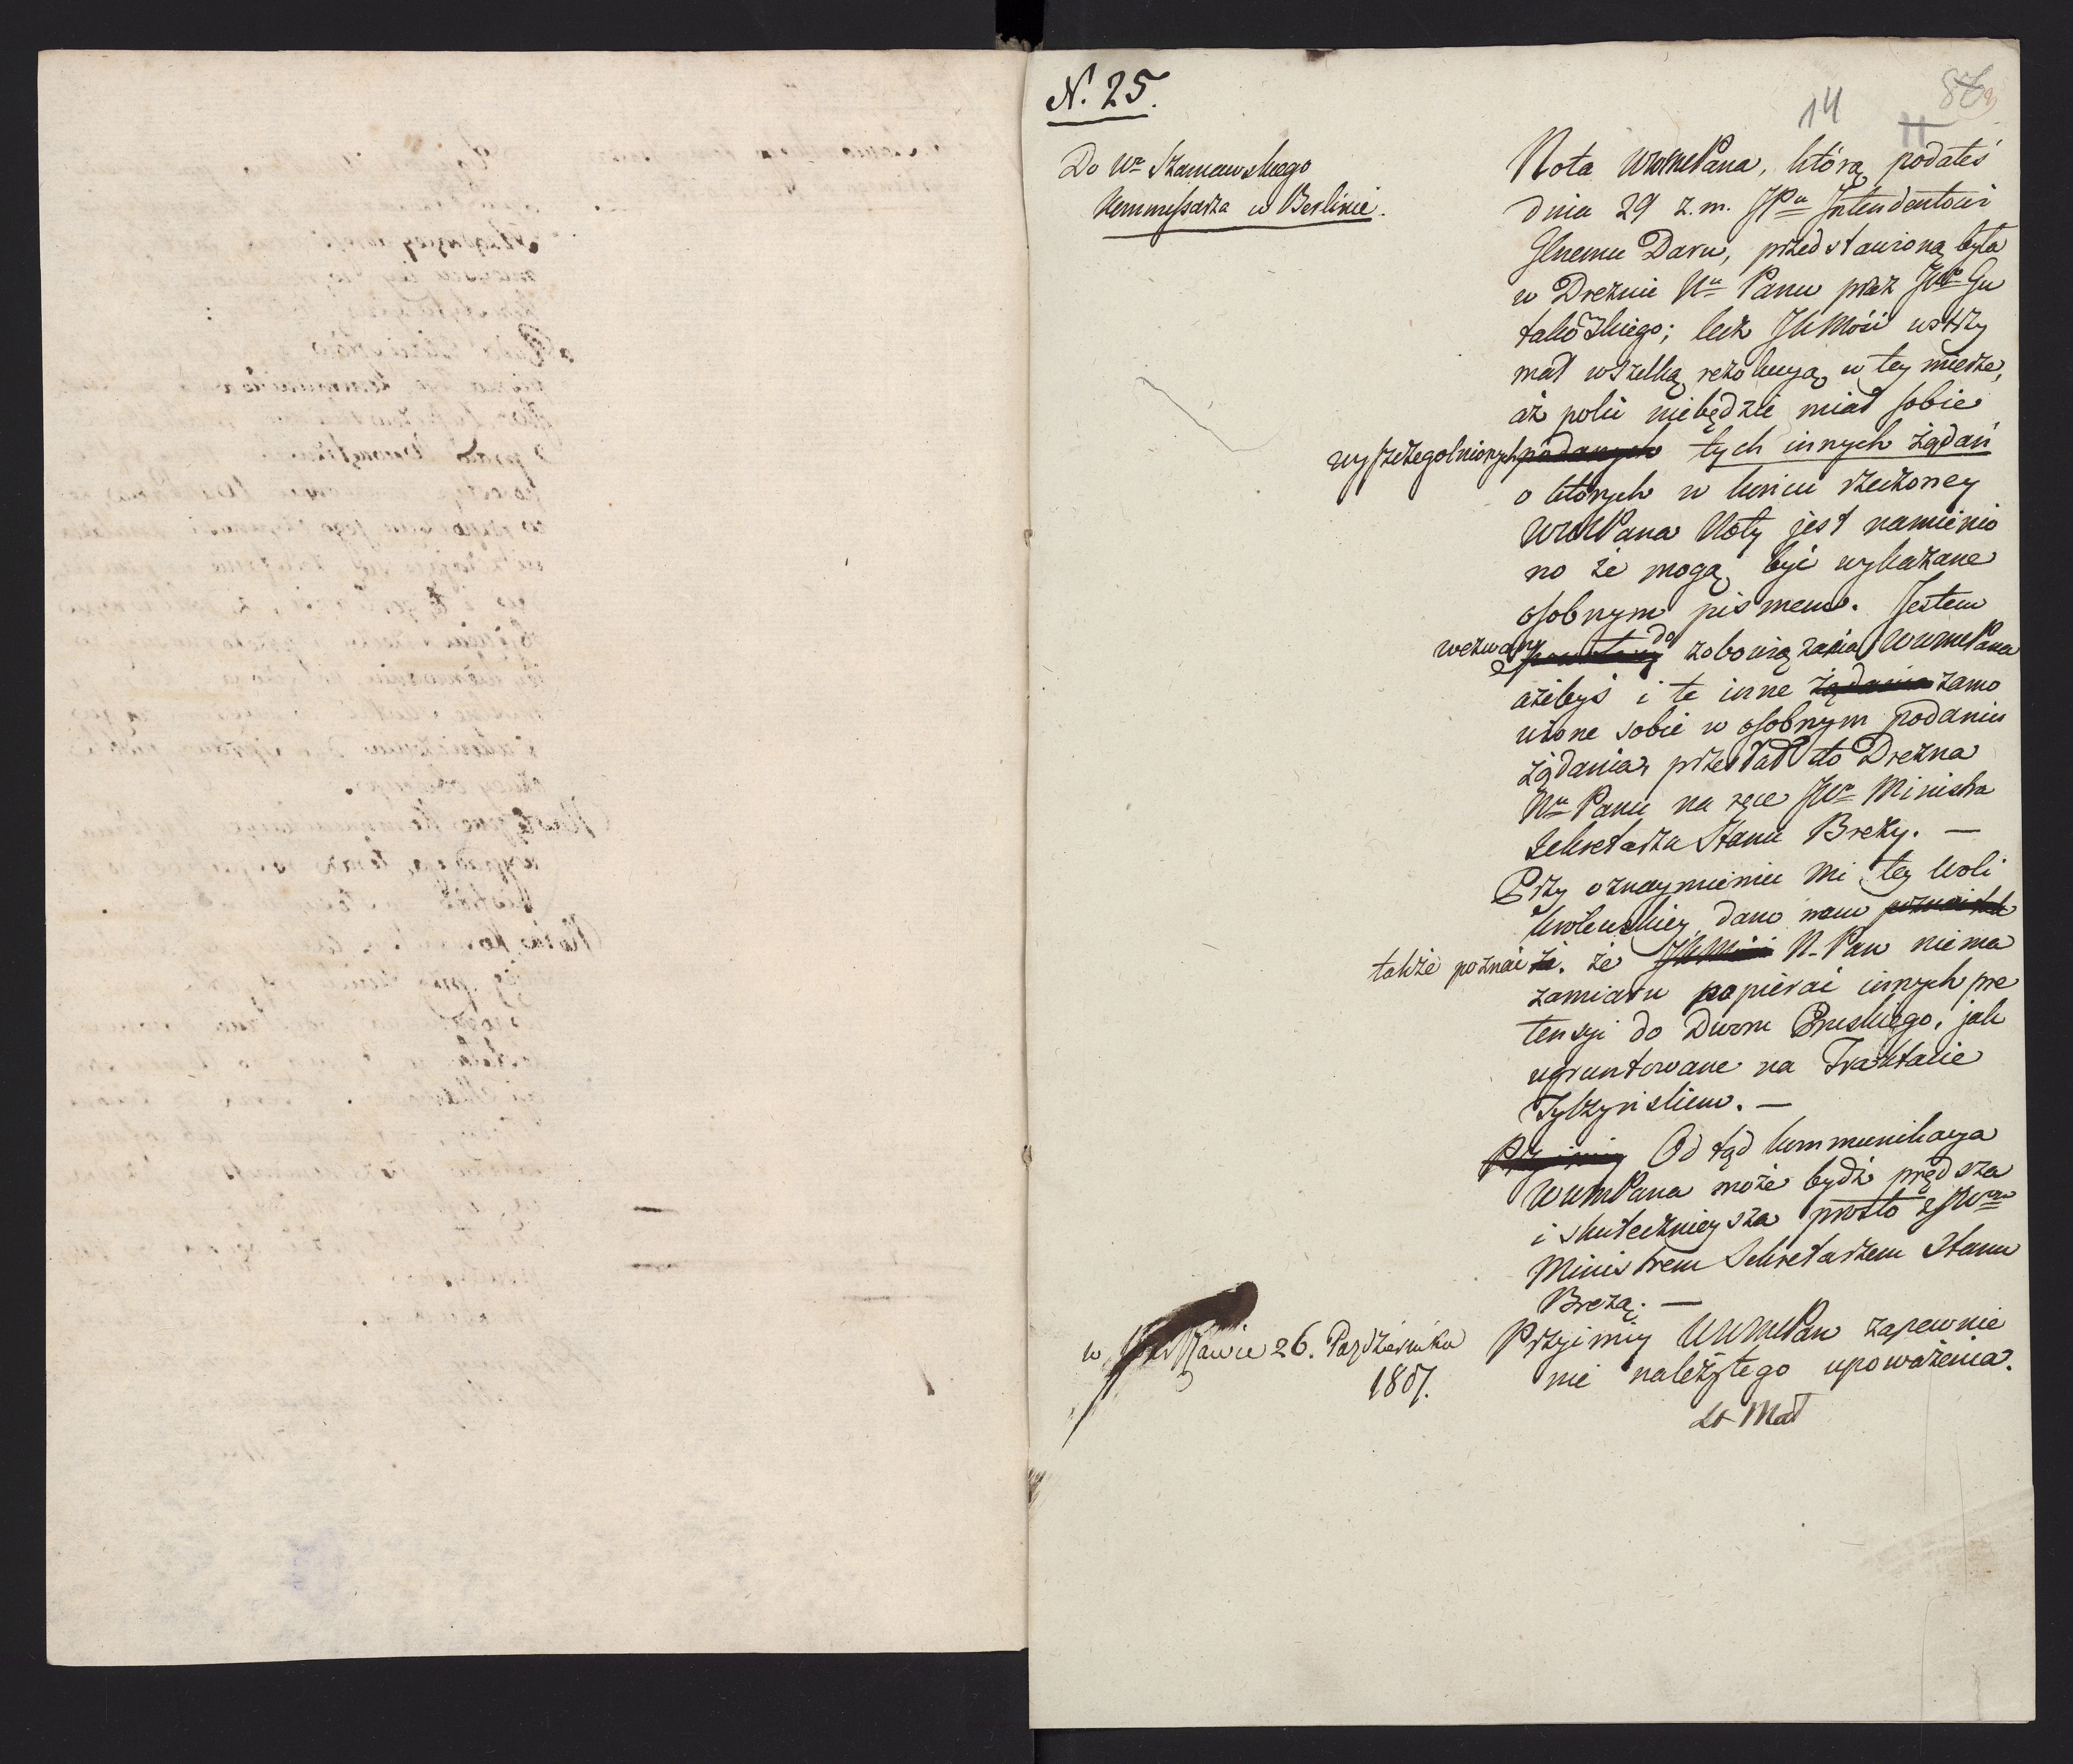 N. 25.
14
11
Do Wo Szaniawskiego
Kommissarza w Berlinie.
Nota WWMPana, którą podałeś
dnia 29 z. m. JPu Intendentowi
Glnemu Daru, przedstawioną była
w Dreznie Nu Panu przez JWo Gu
takowskiego; lecz JKMość wstrzy
mał wszelką rezolucyą w tey mierze,
aż poki niebędzie miał sobie
wyszczegolnionych podanych tych innych żądań
o których w końcu rzeczoney
WWMPana Noty jest namienio
no że mogą być wykazane
osobnym pismem. Jestem
wezwany do zobowiązania WWMPana
ażebyś i te inne żądania zamo
wione sobie w osobnym podaniu
żądania, przesłał do Drezna
Nu Panu na ręce JWo Ministra
Sekretarza Stanu Brezy. —
Przy oznaymieniu mi tey Woli
Krolewskiey, dano nam poznać
także poznać że. że JKMość N. Pan niema
zamiaru popierać innych pre
tensyi do Dworu Pruskiego, jak
ugruntowane na Traktacie
Tylżyńskiem. —
Przyimiy Od tąd kommunikacya
WWMPana może bydź prędsza
i skutecznieysza prosto z JWm
Ministrem Sekretarzem Stanu
Brezą. —
w Warszawie 26. Października
1807.
Przyimiy WWMPan zapewnie
nie należytego upoważenia.
St Mał